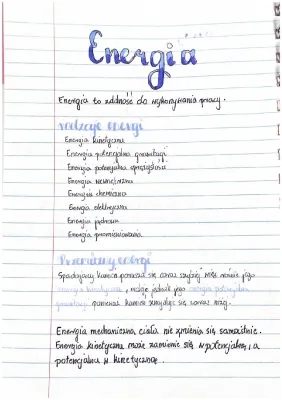 Energia
Energia to zdolność do wykonywania pracy.
rodzaje energii
Energia kinetyczna
Energia potencjalna grawitacji
Energia potencjalna sprężystości
Energia wewnętrzna
Energia chemiczna
Energia elektryczna
Energia jądrowa
Energia promieniowania
Przemiany energii
Spadający kamień porusza się coraz szybciej więc rośnie jego
energia kinetyczna, maleje jednak jego energia potencjalna
grawitacji, ponieważ kamień znajduje się coraz niżej.
Energia mechaniczna ciała nie zmienia się samoistnie.
Energia kinetyczna może zamienić się w potencjalną, a
potencjalna w kinetyczną.